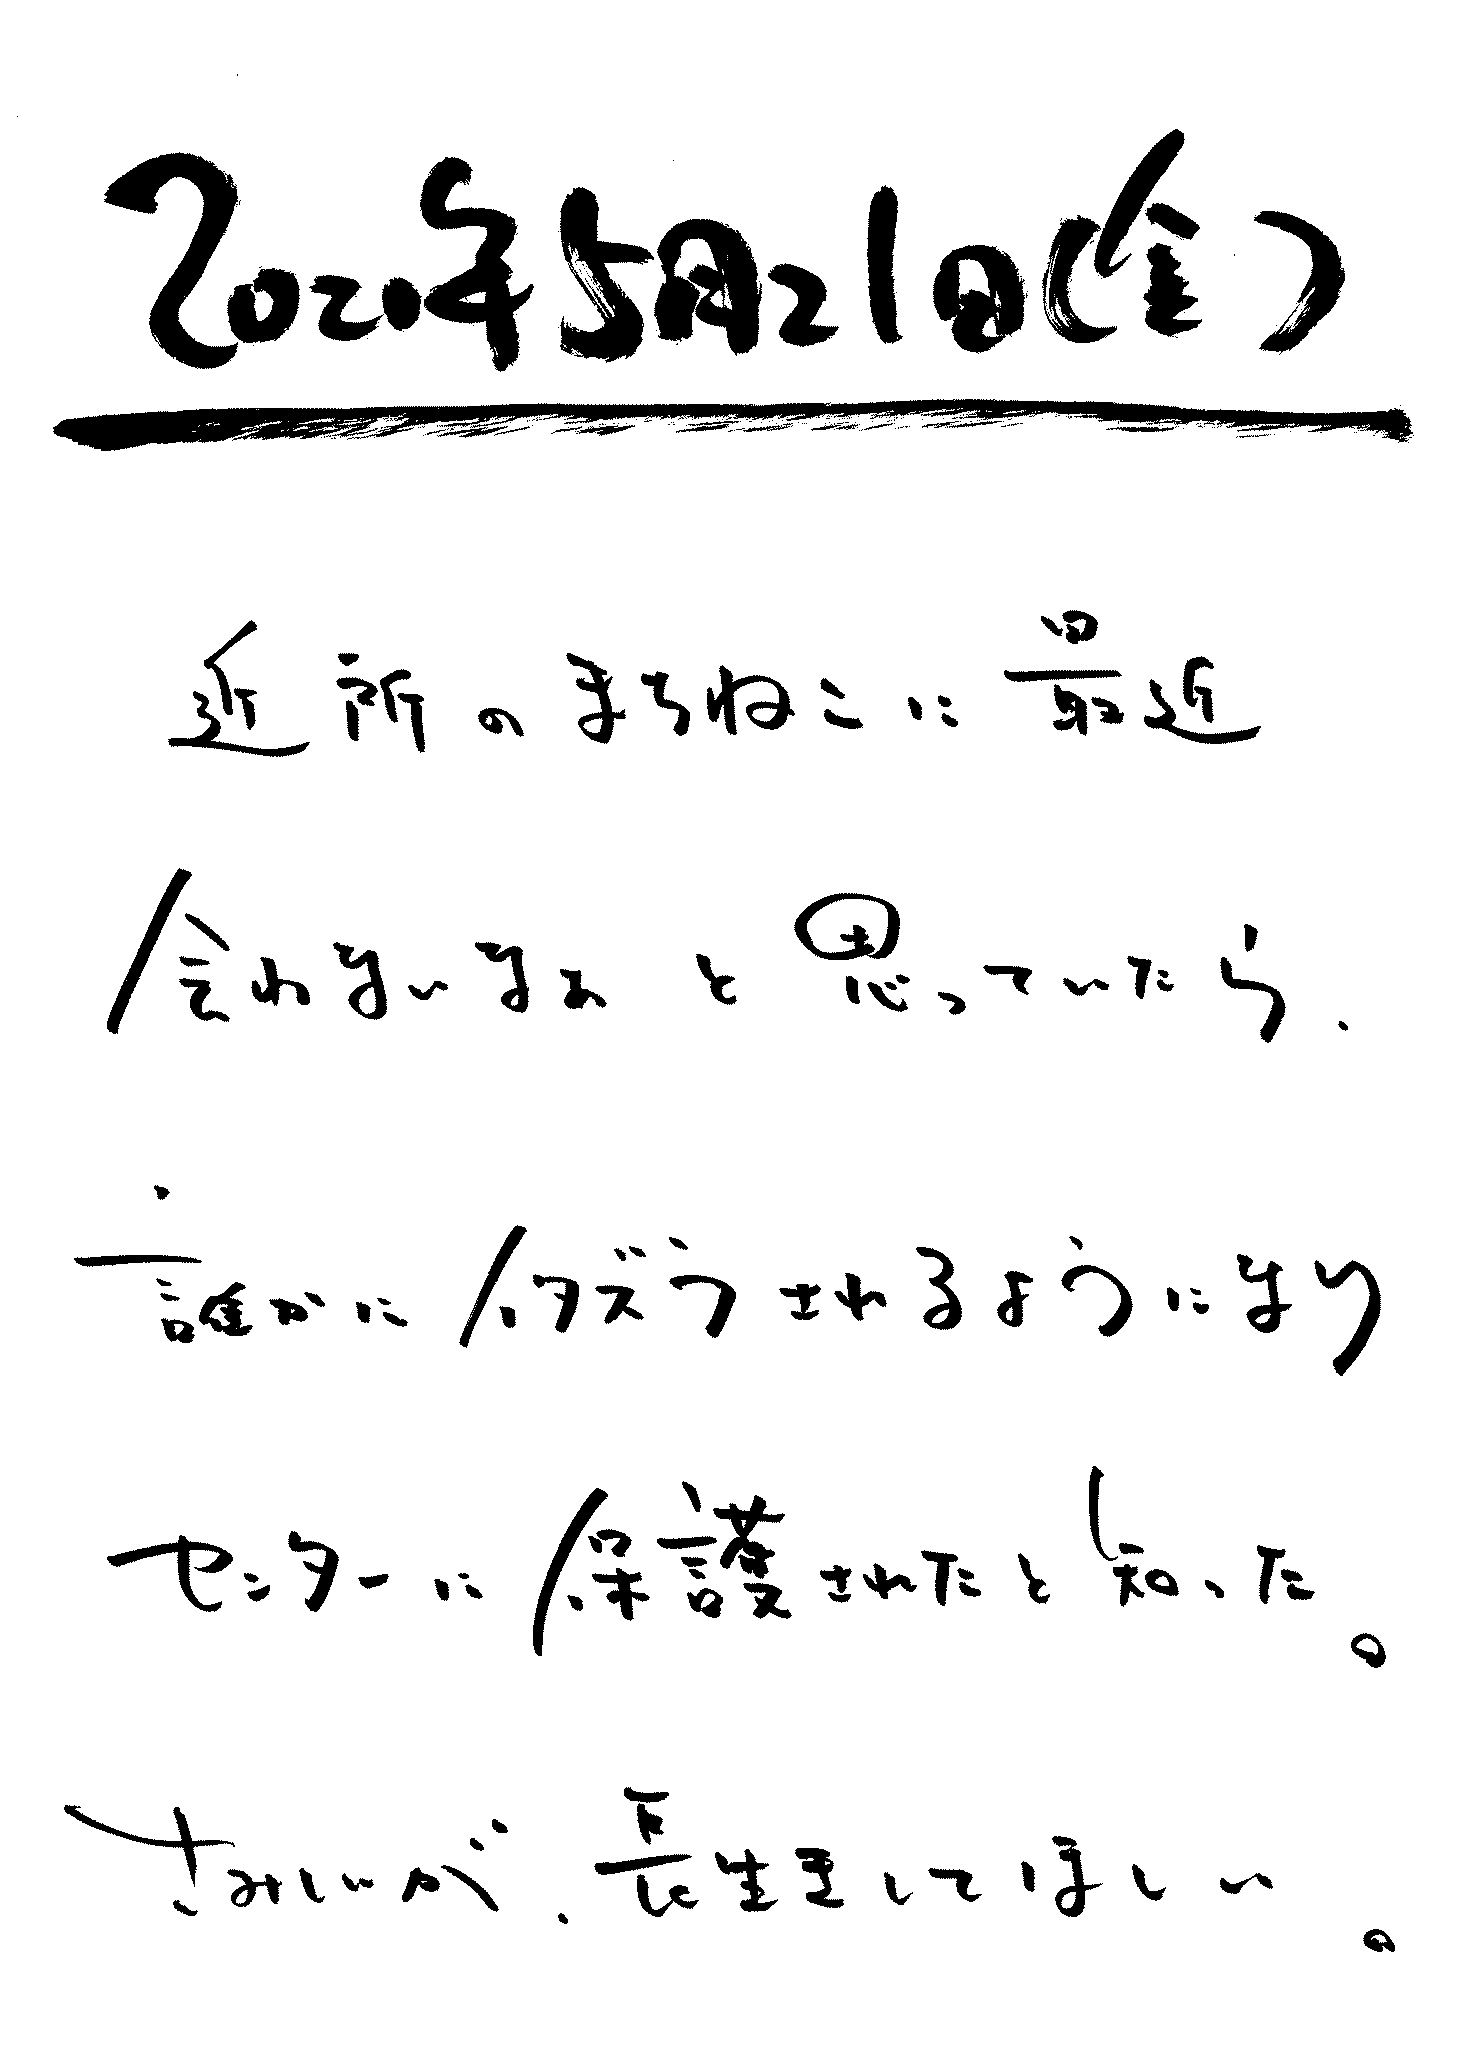 2021年5月21日(金)
近所のまちねこに最近
会わないなぁと思っていたら、
誰かにイタズラされるようになり
センターに保護されたと知った。
さみしいが、長生きしてほしい。